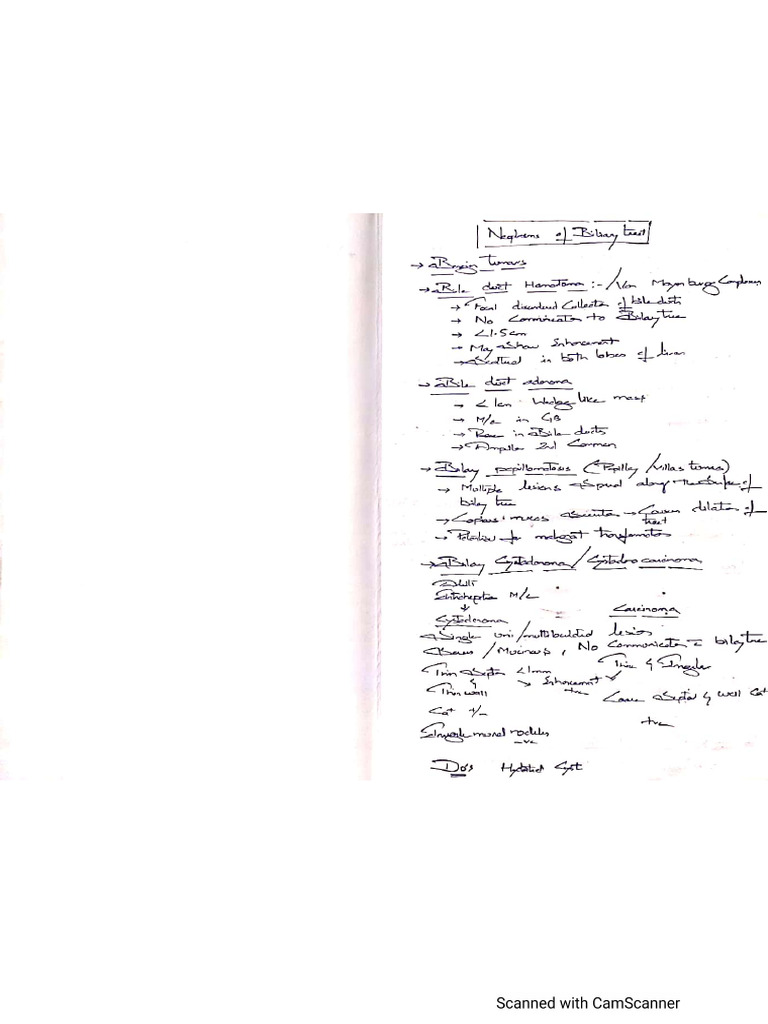 Neoplasms of Biliary tract
→ Benign tumors
→ Bile duct Hamatoma :- / Von Meyenburg Complexes
→ Focal disordered Collection of bile ducts
→ No Communication to Biliary tree
→ <1.5cm
→ May show Enhancement
→ Scattered in both lobes of liver
→ Bile duct adenoma
→ <1cm Wedge like mass
→ M/c in GB
→ Rare in Bile ducts
→ Ampulla 2nd Common
→ Biliary papillomatosis (Papillary / Villas tumors)
→ Multiple lesions Spread along the Surface of
biliary tree
→ Copious mucus Secretion → Causes dilation of
tract
→ Potential for malignant transformation
→ Biliary Cystadenoma / Cystadenocarcinoma
Adult
Intrahepatic M/c
↓
Cystadenoma Carcinoma
Single uni/multiloculated lesion
Serous / Mucinous, No Communication = biliary tree
Thin Septa <1mm Thick & Irregular
& → Enhancement ✓
Thin wall +ve Coarse Septal & wall Ca+
Ca+ +/- +ve
Irregular mural nodules
-ve
D/D's Hydatid Cyst
Scanned with CamScanner